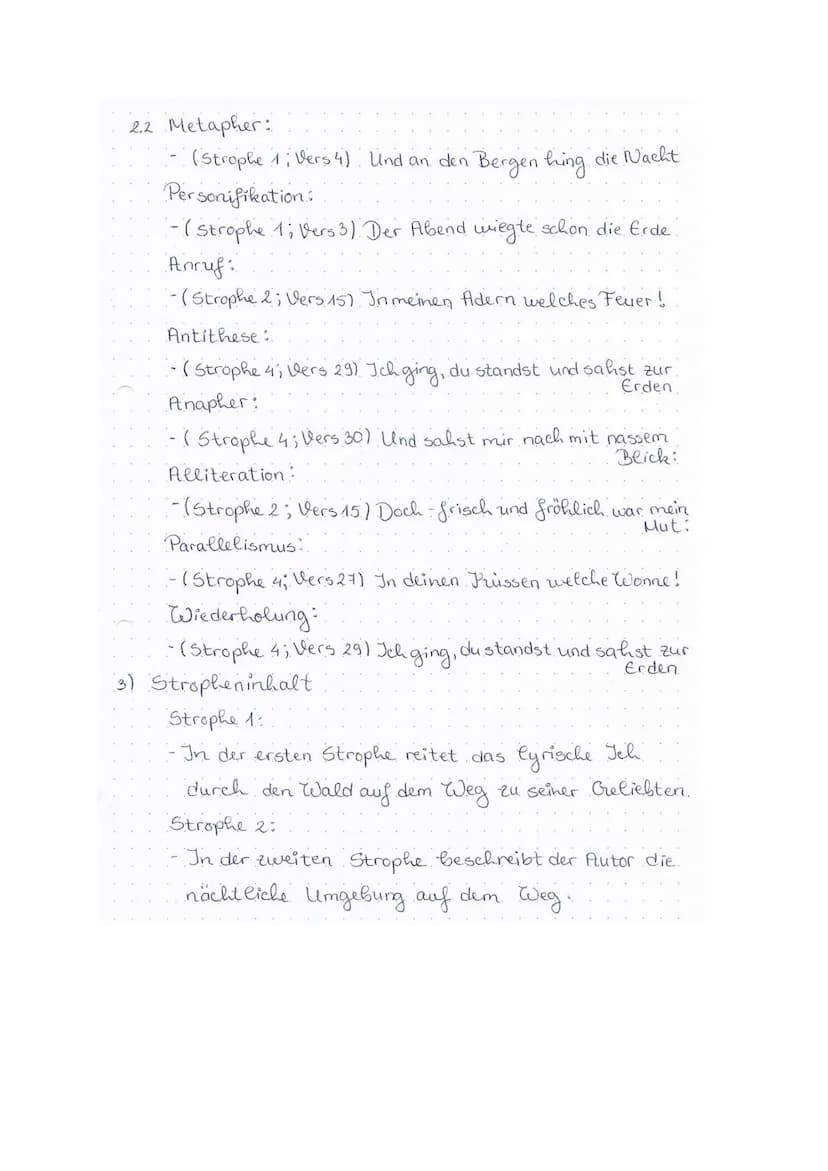 2.2 Metapher:
- (Strophe 1; Vers 4) Und an den Bergen hing die Nacht
Personifikation:
- (Strophe 1; Vers 3) Der Abend wiegte schon die Erde
Anruf:
- (Strophe 2; Vers 15) In meinen Adern welches Feuer!
Antithese:
- (Strophe 4; Vers 29) Ich ging, du standst und sahst zur
Erden
Anapher:
- (Strophe 4; Vers 30) Und sahst mir nach mit nassem
Blick:
Alliteration:
- (Strophe 2; Vers 15) Doch frisch und fröhlich war mein
Mut:
Parallelismus:
- (Strophe 4; Vers 27) In deinen Küssen welche Wonne!
Wiederholung:
- (Strophe 4; Vers 29) Ich ging, du standst und sahst zur
Erden
3) Stropheninhalt
Strophe 1:
- In der ersten Strophe reitet das lyrische Ich
durch den Wald auf dem Weg zu seiner Geliebten.
Strophe 2:
- In der zweiten Strophe beschreibt der Autor die
nächtliche Umgebung auf dem Weg.